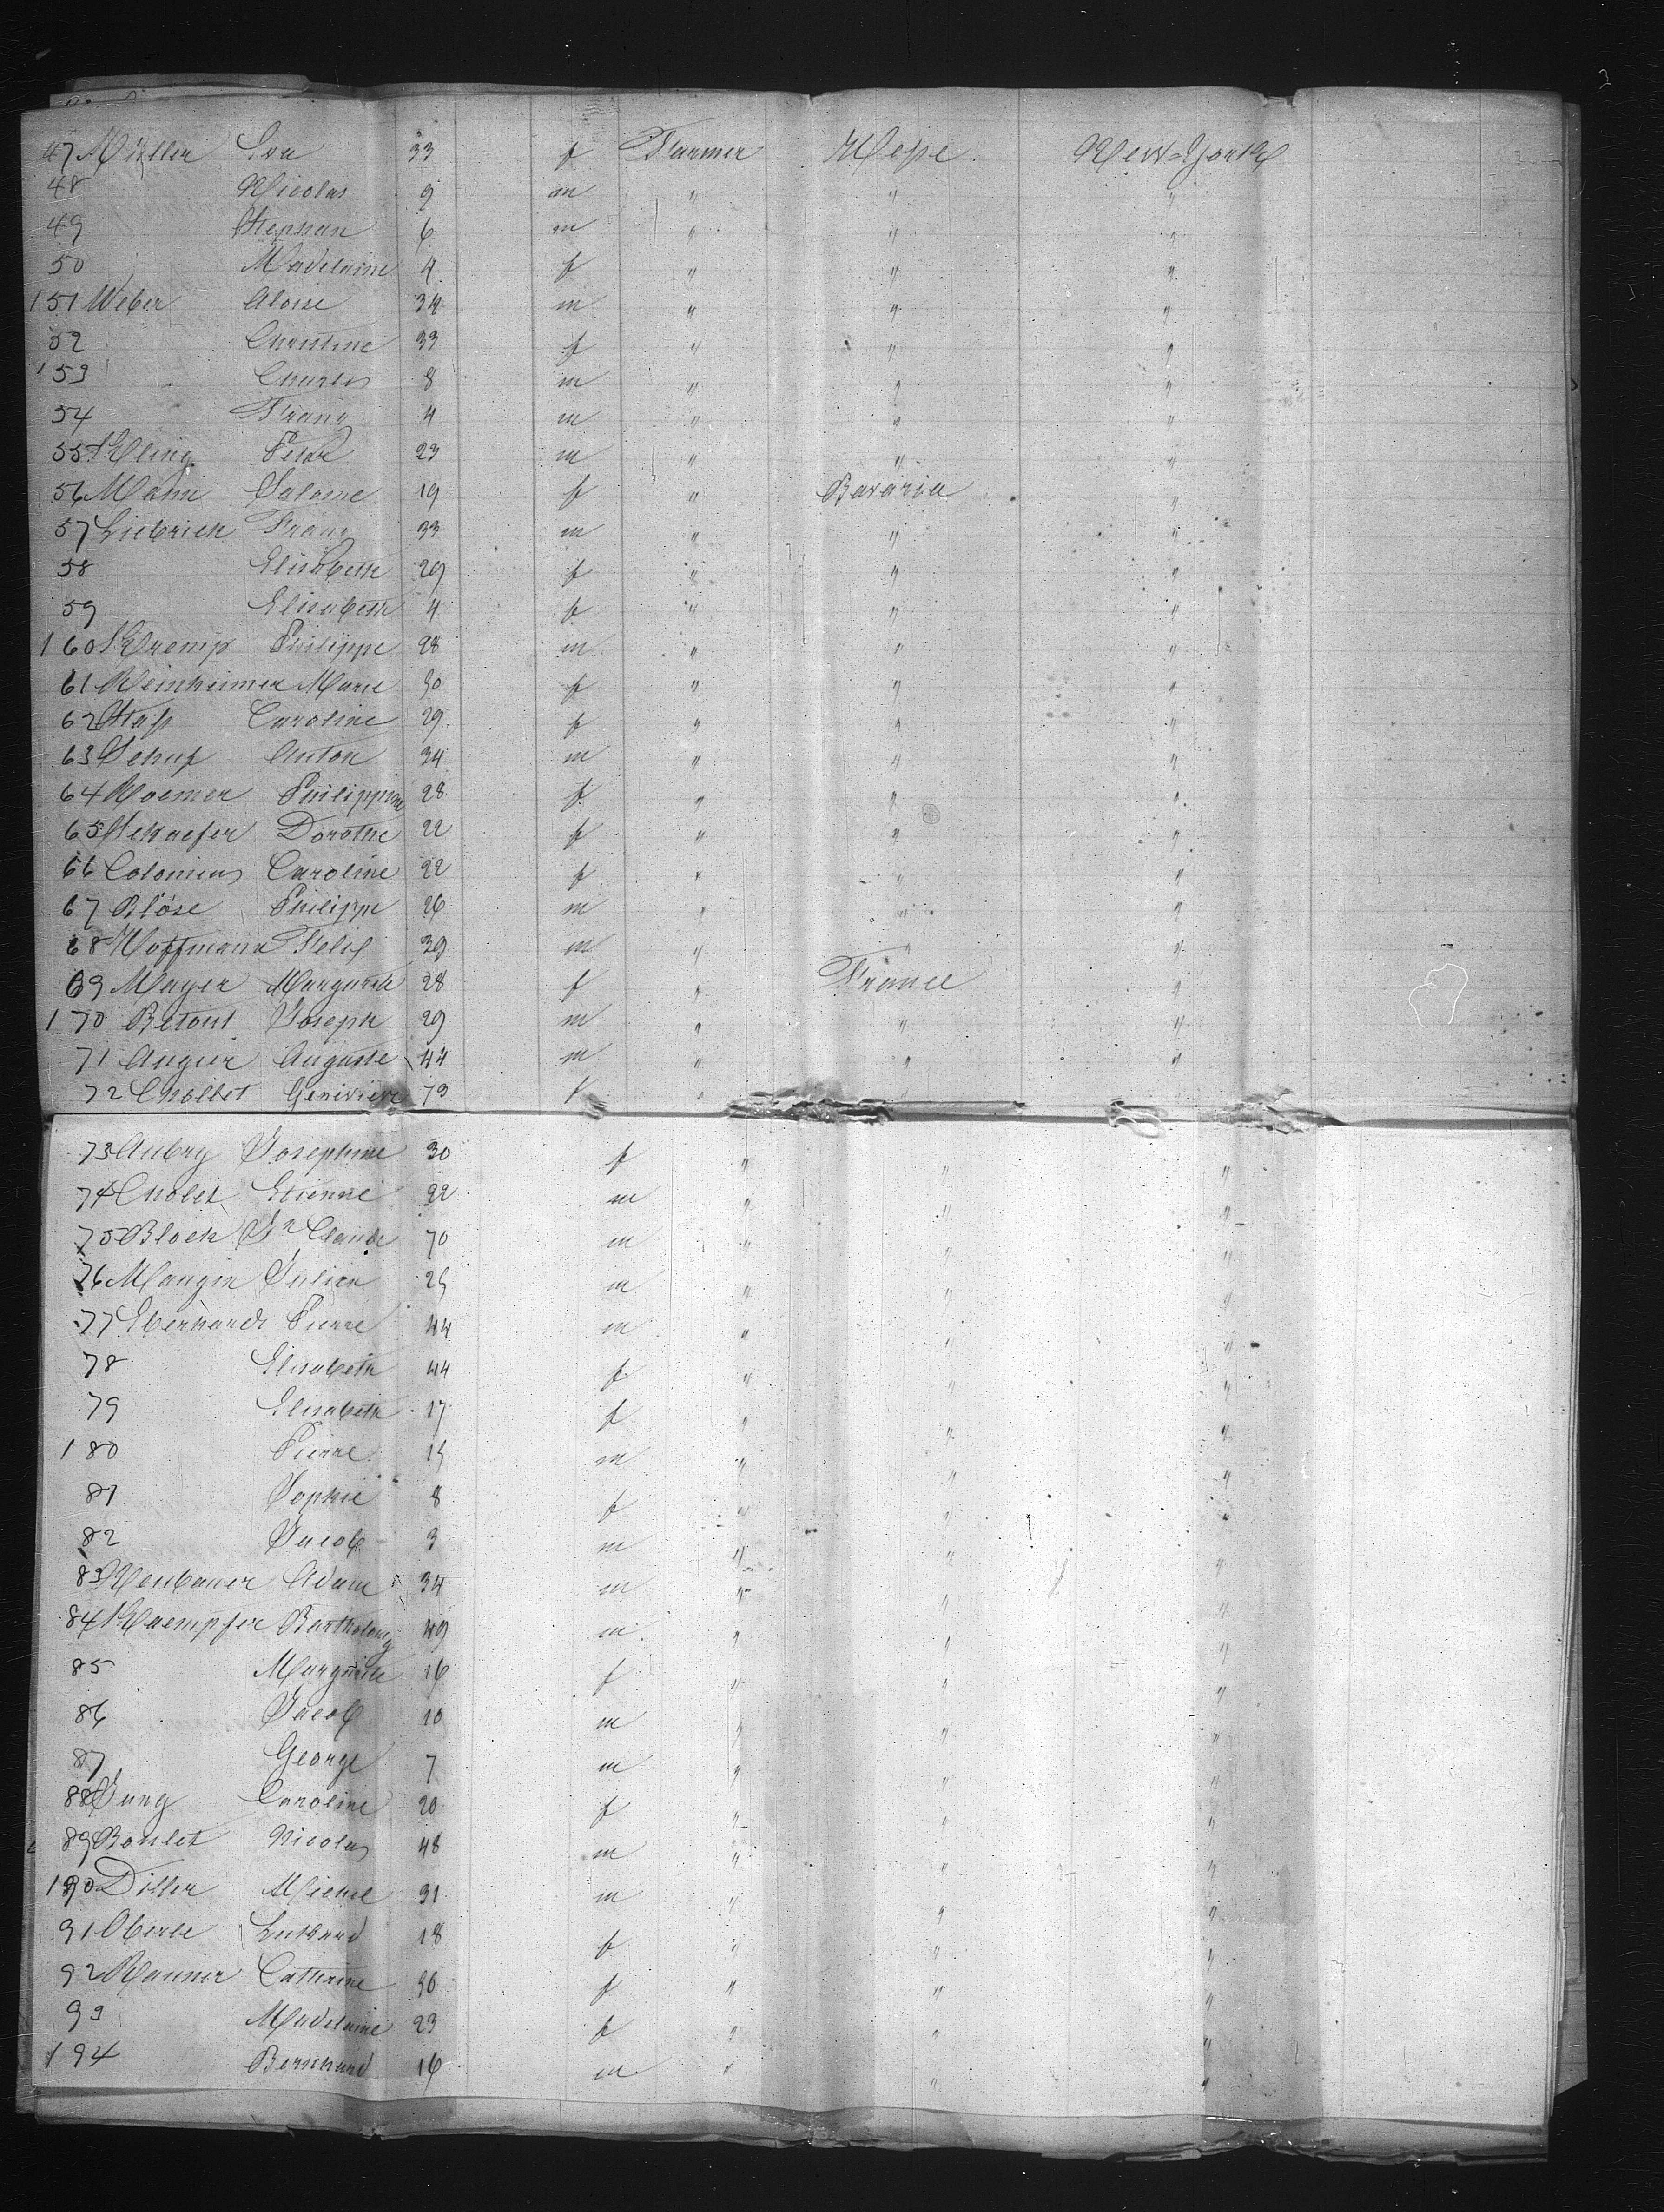 47 Müller Eva 33 f Farmer Hesse New-York
48 Nicolas 9 m " " "
49 Stephan 6 m " " "
50 Madelaine 4 f " " "
151 Weber Aloise 34 m " " "
52 Christine 33 f " " "
153 Charles 8 m " " "
54 Franz 4 m " " "
55 Kling Peter 23 m " " "
56 Mann Salome 19 f " Bavaria "
57 Liebrich Franz 33 m " " "
58 Elisabeth 29 f " " "
59 Elisabeth 4 f " " "
160 Kremp Philippe 28 m " " "
61 Weinheimer Marie 30 f " " "
62 Stass Caroline 29 f " " "
63 Schuf Anton 34 m " " "
64 Roemer Philippine 28 f " " "
65 Schaefer Dorothe 22 f " " "
66 Colomius Caroline 22 f " " "
67 Blöse Philippe 26 m " " "
68 Hoffmann Felix 39 m " " "
69 Mayer Margarete 28 f " France "
170 Betout Joseph 29 m " " "
71 Augier Auguste 44 m " " "
72 Chollet Genivieve 73 f "
73 Aubry Josephine 30 f " " "
74 Cholet Etienne 22 m " " "
75 Block Jn Claude 70 m " " "
76 Mangin Julien 25 m " " "
77 Eberhardt Pierre 44 m " " "
78 Elisabeth 44 f " " "
79 Elisabeth 17 f " " "
180 Pierre 15 m " " "
81 Sophie 8 f " " "
82 Jacob 3 m " " "
83 Neubauer Adam 34 m " " "
84 Kaempfer Bartholomy 49 m " " "
85 Margarete 16 f " " "
86 Jacob 10 m " " "
87 George 7 m " " "
88 Jung Caroline 20 f " " "
89 Boulet Nicolas 48 m " " "
190 Diller Michel 31 m " " "
91 Oberle 18 f " " "
92 Catherine 36 f " " "
93 Madelaine 23 f " " "
194 Bernhard 16 m " " "